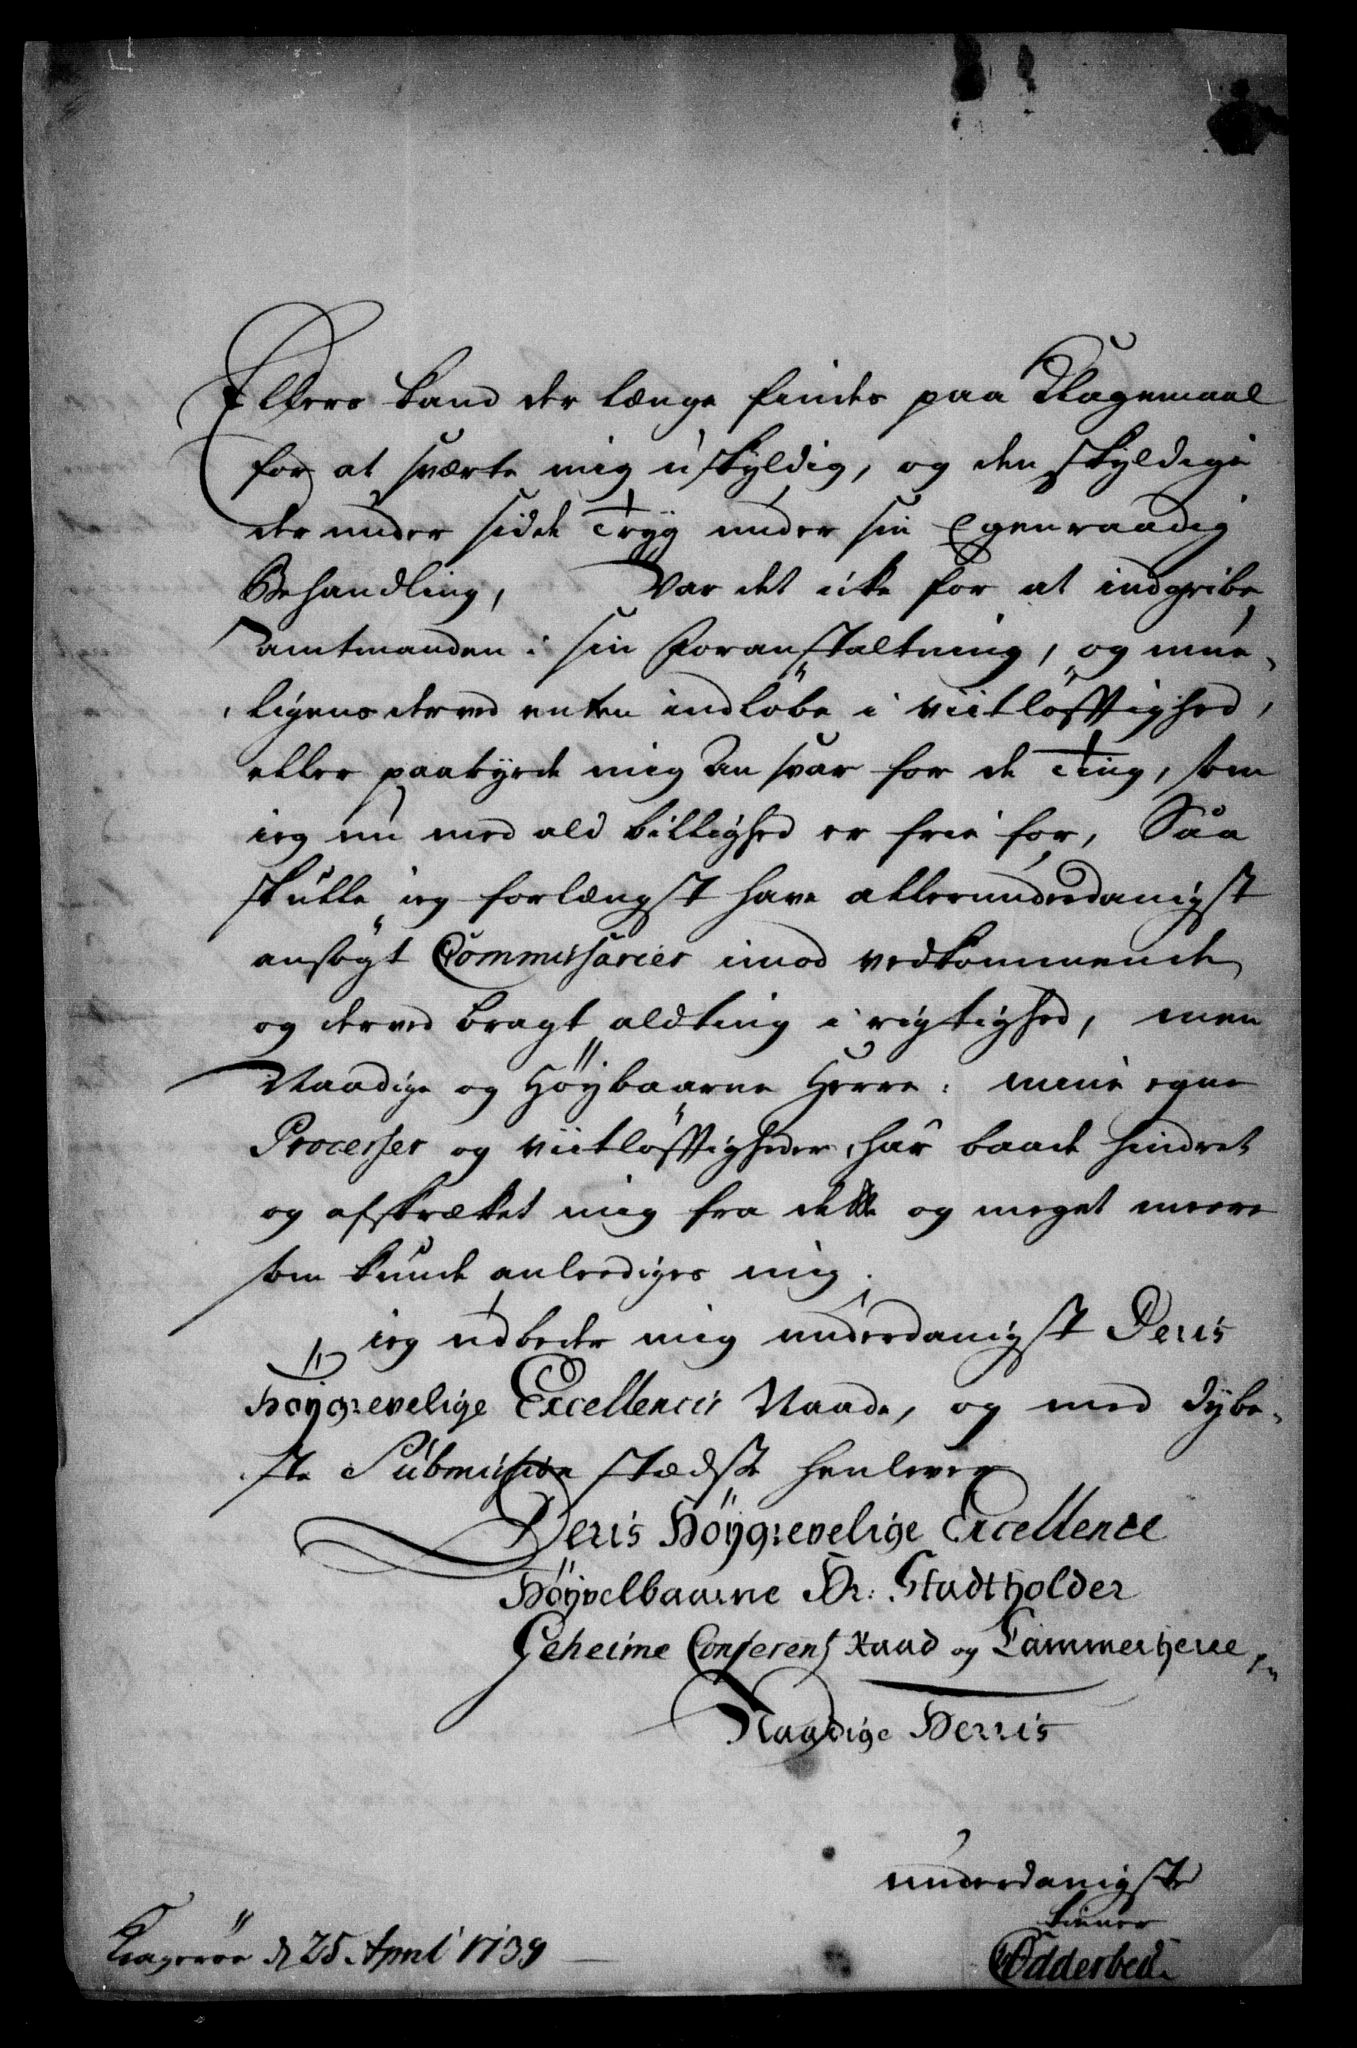 Ellers kand der længe findes paa Klagemaal
for at sværte mig uskyldig, og den skyldige
der under side Tryg under sin Egenraadig
Behandling, Var det icke for at indgribe
Amtmanden i sin Foranstaltning, og mue-
ligens derved enten indløbe i viitløfftighed,
eller paabyrde mig Ansvar for de Ting, som
ieg nu med ald billighed er frie for, Saa
skulle ieg forlængst have allerunderdanigst
ansøgt Commissarier imod vedkommende
og derved bragt aldting i rigtighed, men
Naadige og Høybaarne Herre: mine egne
Processer og viitløfftigheder, har baade hindret
og afskrækket mig fra dette og meget meere
som kunde anleediges mig.
ieg udbeder mig underdanigst Deris
Høygrevelige Excellences Naade, og med dybe-
ste Submission stædse henlever
Deris Høygrevelige Excellence
Høyvelbaarne Hr: Stadtholder
Geheime Conferentz Raad og Cammerherre,
Naadige Herris
underdanigste
tienner
Odderbech
Kragerøe d 25 April 1739